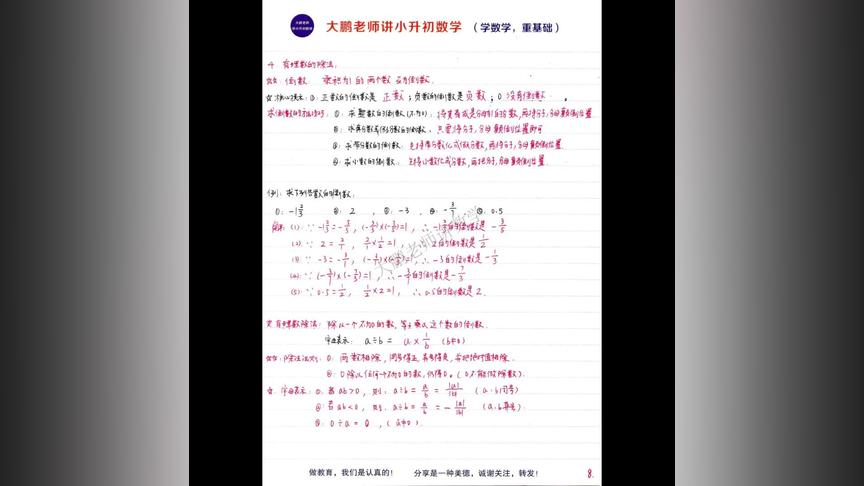 大鹏老师
讲小升初数学
大鹏老师讲小升初数学 (学数学,重基础)
4. 有理数的除法:
倒数 乘积为1的两个数互为倒数.
①: 正数的倒数是 正数 ; 负数的倒数是 负数 ; 0 没有倒数 .
求倒数的方法技巧: ①: 求整数的倒数(不为0): 将其看成是分母为1的分数,再将分子,分母颠倒位置.
②: 求真分数与假分数的倒数. 只需将分子,分母颠倒位置即可
③: 求带分数的倒数: 先将带分数化成假分数,再将分子,分母颠倒位置.
④: 求小数的倒数: 先将小数化成分数,再把分子,分母颠倒位置.
例1: 求下列各数的倒数:
①: -1⅔ ②: 2 , ③: -3 , ④: -3/7 ⑤: 0.5
(1): ∵ -1⅔ = -5/3, (-5/3)×(-3/5)=1, ∴ -1⅔的倒数是 -3/5
(2): ∵ 2 = 2/1, 2/1×1/2=1, ∴ 2的倒数是 1/2
(3): ∵ -3 = -3/1, (-3/1)×(-1/3)=1, ∴ -3的倒数是 -1/3
(4): ∵ (-3/7)×(-7/3)=1, ∴ -3/7的倒数是 -7/3
(5): ∵ 0.5 = 1/2, 1/2×2=1, ∴ 0.5的倒数是 2.
有理数除法: 除以一个不为0的数, 等于乘以这个数的倒数.
字母表示: a÷b = a×1/b (b≠0)
除法法则: ①: 两数相除, 同号得正, 异号得负, 并把绝对值相除.
②: 0除以任何一个不为0的数, 仍得0. (0不能做除数).
字母表示: ①. 若 ab>0, 则: a÷b = a/b = |a|/|b| (a.b同号)
②: 若 ab<0, 则: a÷b = a/b = -|a|/|b| (a.b异号)
③: 0÷a = 0, (a≠0).
大鹏老师讲数学
做教育,我们是认真的! 分享是一种美德,诚谢关注,转发! 8.